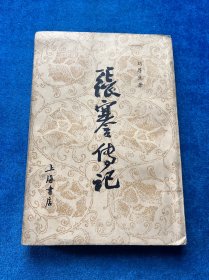 刘厚生著
張謇傳記
上海書店